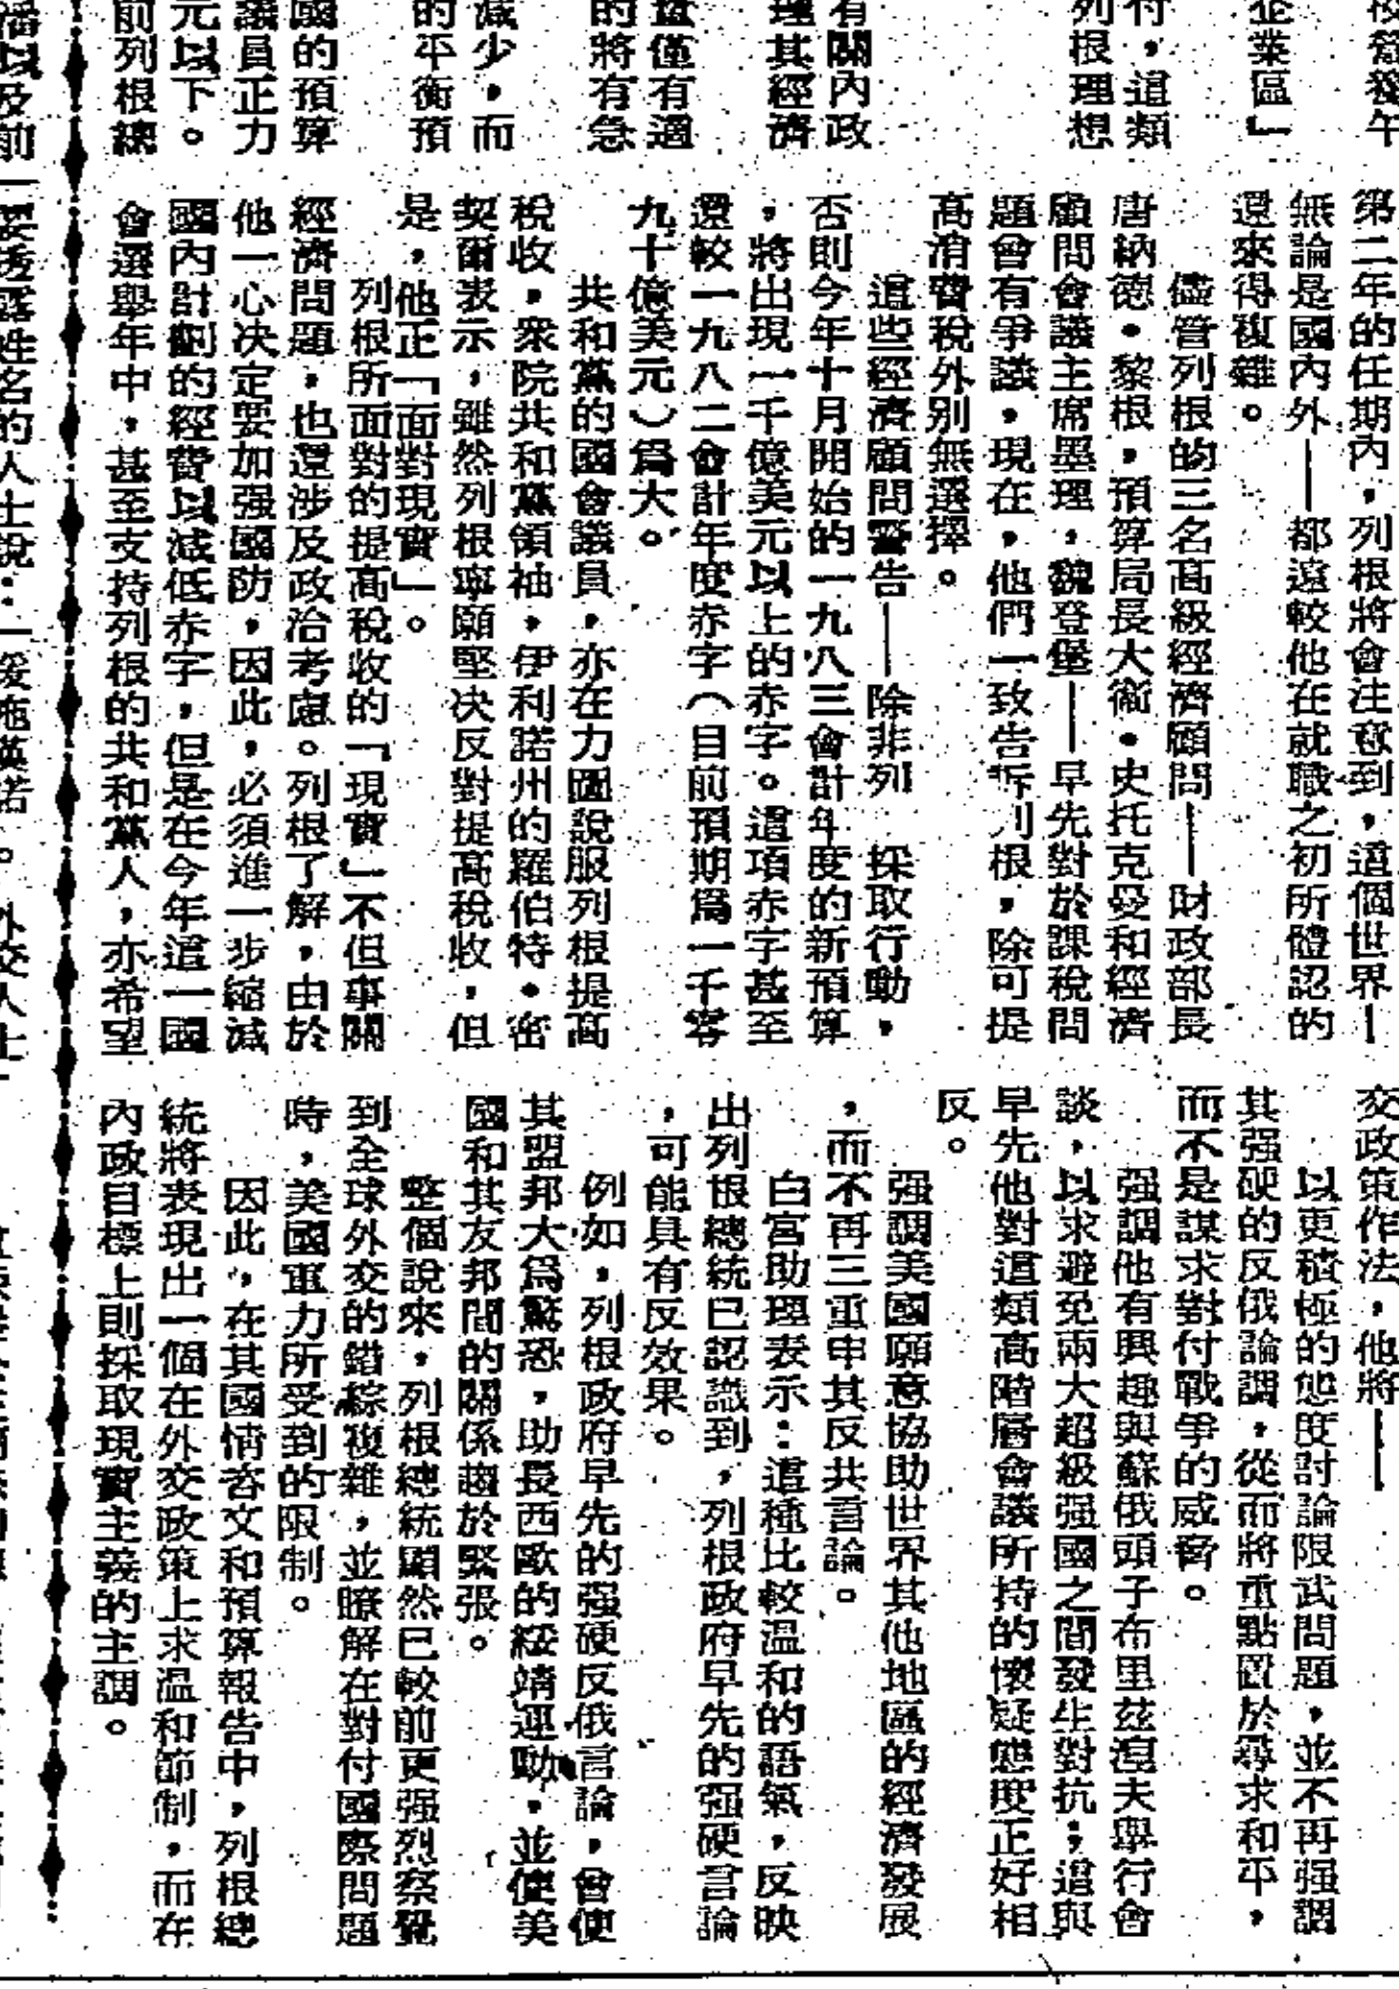 有關內政
理其經濟
盔僅有適
的將有急
減少，而
的平衡預
國的預算
議員正力
元以下。
前列根總
付，這類
列根理想
企業區」
第二年的任期內，列根將會注意到，這個世界—
無論是國內外——都遠較他在就職之初所體認的
還來得複雜。
儘管列根的三名高級經濟顧問——財政部長
唐納德•黎根，預算局長大衞•史托克曼和經濟
顧問會議主席墨理，魏登堡——早先對於課稅問
題會有爭議，現在，他們一致告訴列根，除可提
高消費稅外別無選擇。
這些經濟顧問警告——除非列 採取行動，
否則今年十月開始的一九八三會計年度的新預算
，將出現一千億美元以上的赤字。這項赤字甚至
還較一九八二會計年度赤字（目前預期爲一千零
九十億美元）爲大。
共和黨的國會議員，亦在力圖說服列根提高
稅收，衆院共和黨領袖，伊利諾州的羅伯特•密
契爾表示，雖然列根寧願堅决反對提高稅收，但
是，他正「面對現實」。
列根所面對的提高稅收的「現實」不但事關
經濟問題，也還涉及政治考慮。列根了解，由於
他一心决定要加强國防，因此，必須進一步縮減
國內計劃的經費以減低赤字，但是在今年這一國
會選舉年中，甚至支持列根的共和黨人，亦希望
交政策作法，他將——
以更積極的態度討論限武問題，並不再强調
其强硬的反俄論調，從而將重點置於尋求和平，
而不是謀求對付戰爭的威脅。
强調他有興趣與蘇俄頭子布里茲湼夫舉行會
談，以求避免兩大超級强國之間發生對抗；這與
早先他對這類高階層會議所持的懷疑態度正好相
反。
强調美國願意協助世界其他地區的經濟發展
，而不再三重申其反共言論。
白宮助理表示：這種比較温和的語氣，反映
出列根總統已認識到，列根政府早先的强硬言論
，可能具有反效果。
例如，列根政府早先的强硬反俄言論，會使
其盟邦大爲驚恐，助長西歐的綏靖運動，並使美
國和其友邦間的關係趨於緊張。
整個說來，列根總統顯然已較前更强烈察覺
到全球外交的錯綜複雜，並瞭解在對付國際問題
時，美國軍力所受到的限制。
因此，在其國情咨文和預算報告中，列根總
統將表現出一個在外交政策上求温和節制，而在
內政目標上則採取現實主義的主調。